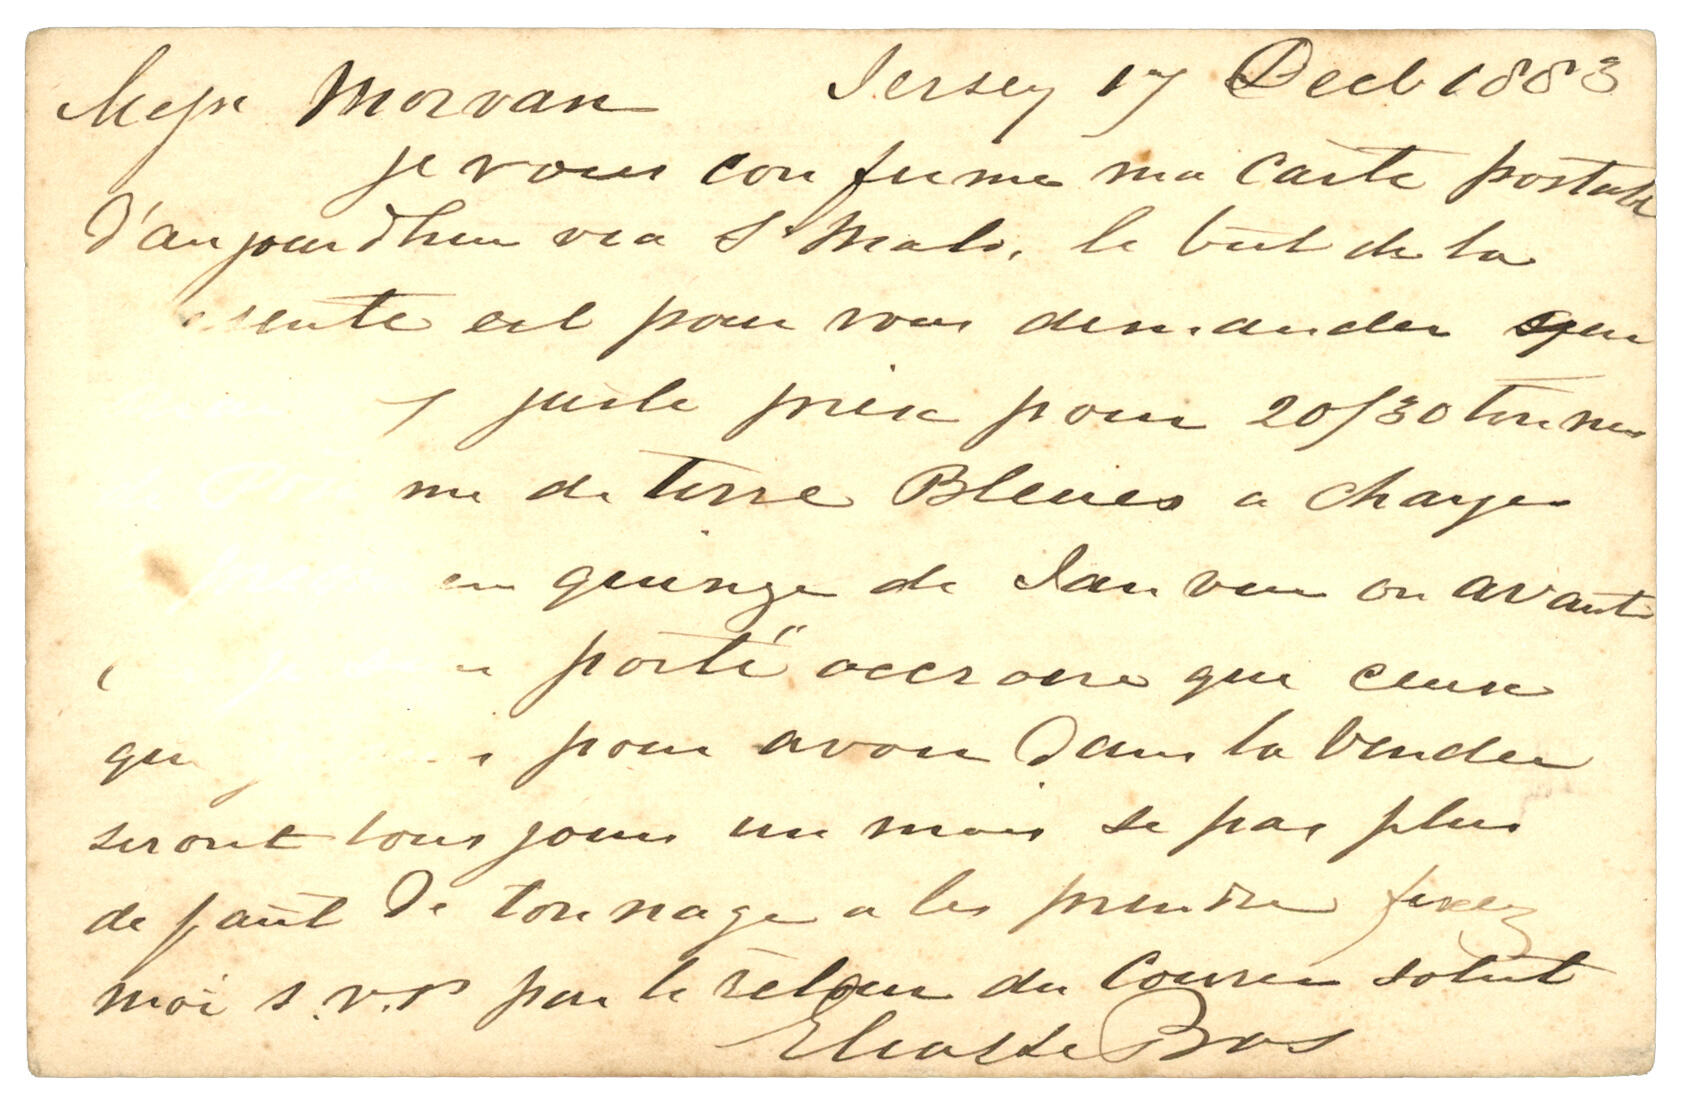 Messr Morvan Jersey 17 Decb 1883
je vous confirme ma carte postale
d'aujourdhui via St Malo, le but de la
sente est pour vous demander
juste prix pour 20/30 tonnes
me de terre Bleues a charger
en quinze de Janvier ou avant
porté accroire que ceux
que pour avoir dans la Vendée
seront tous jours un mois
de faut de tonnage a les prendre fixez
moi s.v.P par le retour du Courrier salut
Eliasse Bros